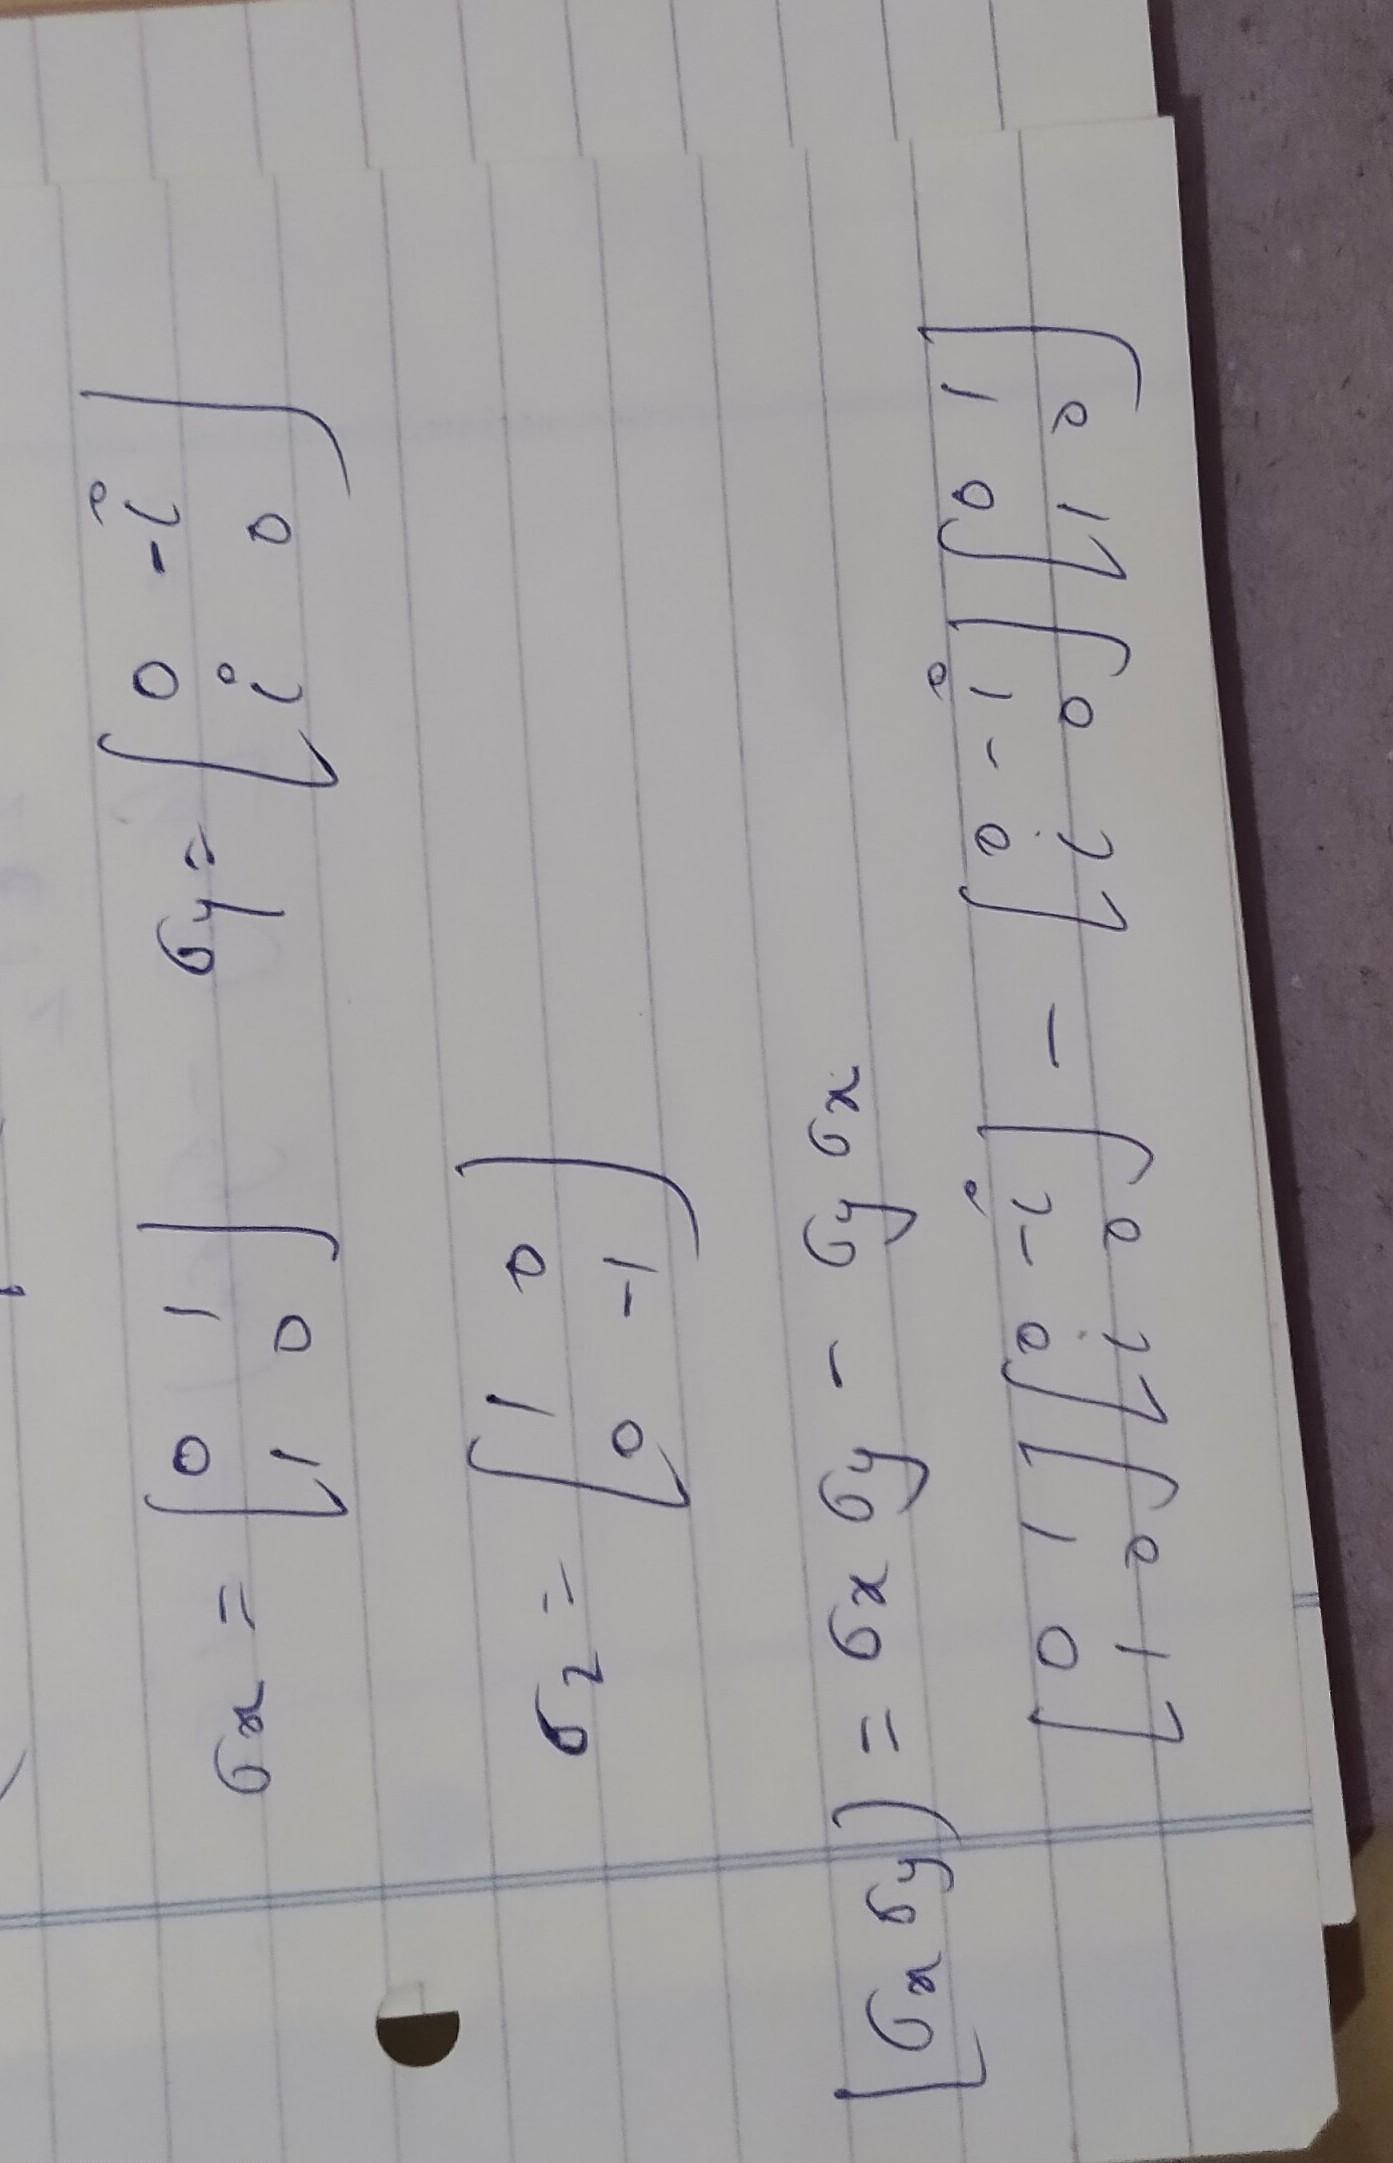 σx = [0 1; 1 0]   σy = [0 -i; i 0]
σz = [1 0; 0 -1]
[σx σy] = σx σy - σy σx
[0 1; 1 0] [0 -i; i 0] - [0 -i; i 0] [0 1; 1 0]